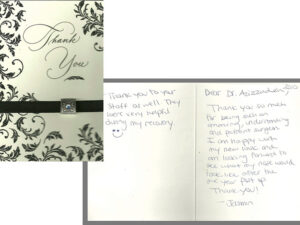 Thank
You
Thank you to your
staff as well. They
were very helpful
during my recovery.
Dear Dr.
Thank you so much
for being such an
amazing, understanding
and patient surgeon.
I am happy with
my new look and
am looking forward to
see what my nose would
look like after the
one year post op.
Thank you!